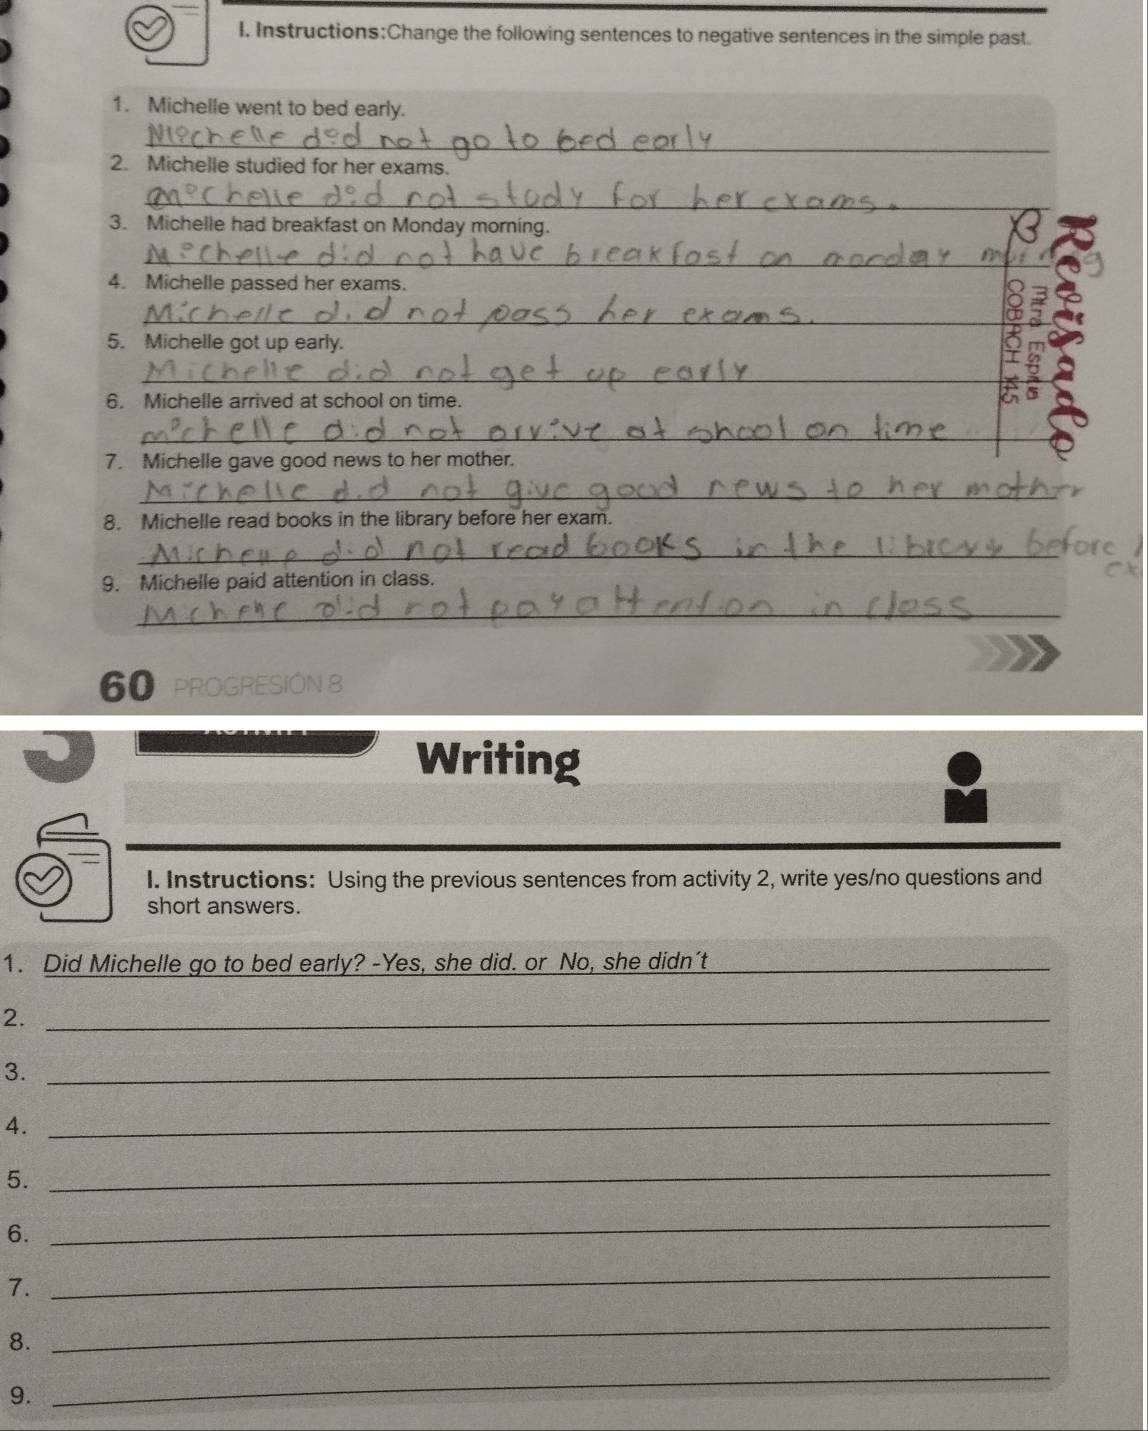 I. Instructions:Change the following sentences to negative sentences in the simple past.
1. Michelle went to bed early.
Michelle did not go to bed early
2. Michelle studied for her exams.
michelle did not study for her exams.
3. Michelle had breakfast on Monday morning.
Michelle did not have breakfast on monday
4. Michelle passed her exams.
Michelle did not pass her exams.
5. Michelle got up early.
Michelle did not get up early
6. Michelle arrived at school on time.
michelle did not arrive at shool on time
7. Michelle gave good news to her mother.
Michelle did not give good news to her mother
8. Michelle read books in the library before her exam.
Michelle did not read books in the library before
ex
9. Michelle paid attention in class.
Michelle did not pay attention in class
Revisado
COBACH 145
60 PROGRESIÓN 8
3
Writing
I. Instructions: Using the previous sentences from activity 2, write yes/no questions and
short answers.
1. Did Michelle go to bed early? -Yes, she did. or No, she didn´t
2.
3.
4.
5.
6.
7.
8.
9.